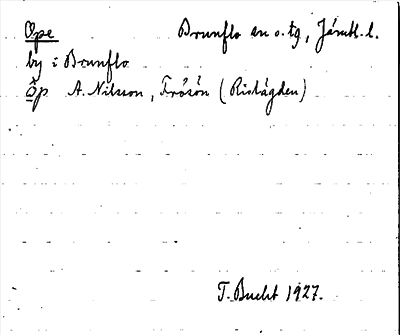 Ope Brunflo sn o. tg, Jämtl. l.
by i Brunflo
Öp A. Nilsson, Frösön (Ristägden)
T. Bucht 1927.